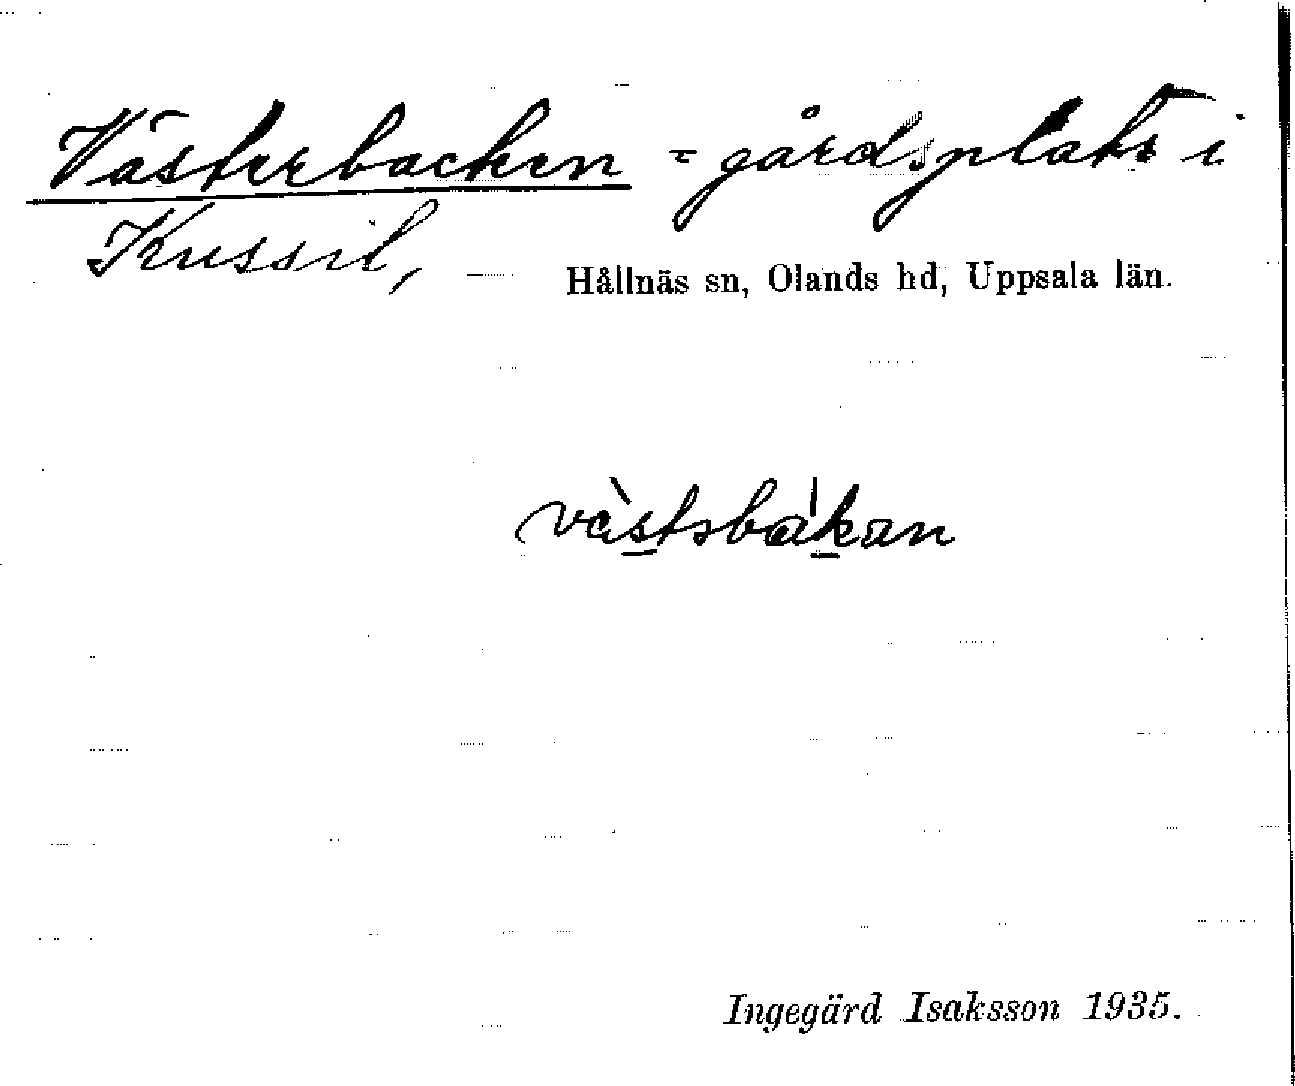 Västerbacken = gårdsplats i
Kussil,
Hållnäs sn, Olands hd, Uppsala län.
västsbakan
Ingegärd Isaksson 1935.